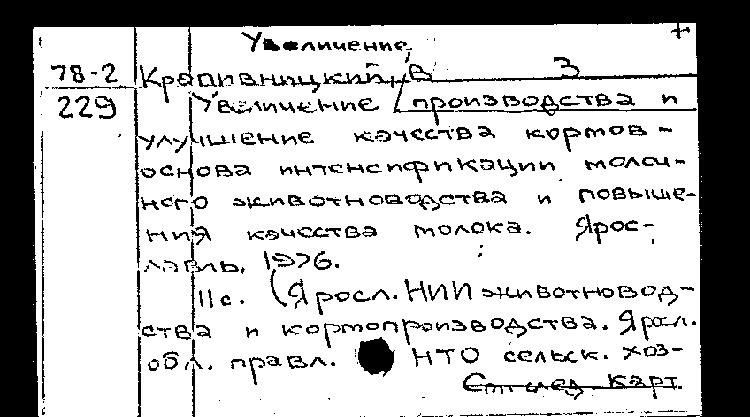 +
Увеличение
78-2 Кропивницкий, В 3
229 Увеличение производства и
улучшение качества кормов-
основа интенсификации молоч-
ного животноводства и повыше-
ния качества молока. Ярос-
лавль, 1976.
11с. (Яросл. НИИ животновод-
ства и кормопроизводства. Яросл.
обл. правл. НТО сельск. хоз-
См след карт.